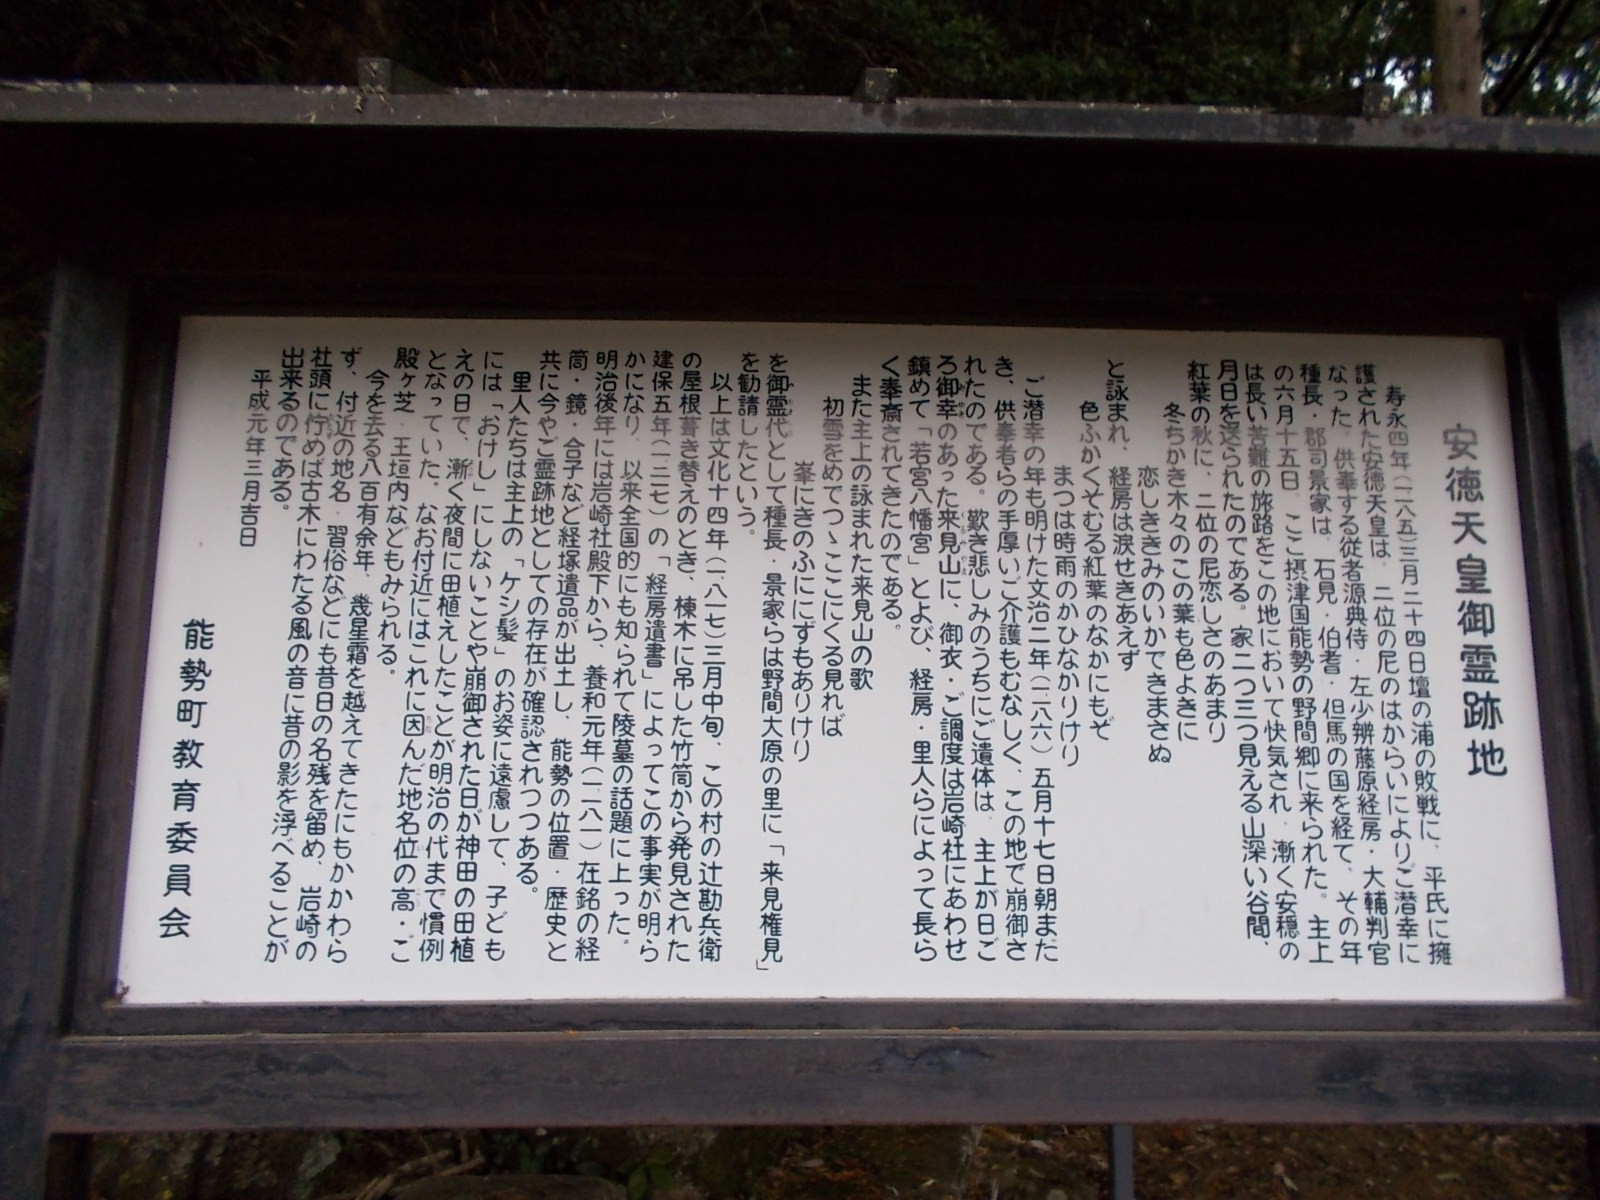 安徳天皇御霊跡地
寿永四年(一一八五)三月二十四日壇の浦の敗戦に、平氏に擁
護された安徳天皇は、二位の尼のはからいによりご潜幸に
なった。供奉する従者源典侍・左少辨藤原経房・大輔判官
種長・郡司景家は、石見・伯耆・但馬の国を経て、その年
の六月十五日、ここ摂津国能勢の野間郷に来られた。主上
は長い苦難の旅路をこの地において快気され、漸く安穏の
月日を送られたのである。家二つ三つ見える山深い谷間、
紅葉の秋に、二位の尼恋しさのあまり
冬ちかき木々のこの葉も色よきに
恋しききみのいかできまさぬ
と詠まれ、経房は涙せきあえず
色ふかくそむる紅葉のなかにもぞ
まつは時雨のかひなかりけり
ご潜幸の年も明けた文治二年(一一八六)五月十七日朝まだ
き、供奉者らの手厚いご介護もむなしく、この地で崩御さ
れたのである。歎き悲しみのうちにご遺体は、主上が日ご
ろ御幸のあった来見山に、御衣・ご調度は岩崎社にあわせ
鎮めて「若宮八幡宮」とよび、経房・里人らによって長ら
く奉斎されてきたのである。
また主上の詠まれた来見山の歌
初雪をめでつゝここにくる見れば
峯にきのふににずもありけり
を御霊代として種長・景家らは野間大原の里に「来見権見」
を勧請したという。
以上は文化十四年(一八一七)三月中旬、この村の辻勘兵衛
の屋根葺き替えのとき、棟木に吊した竹筒から発見された
建保五年(一二一七)の「経房遺書」によってこの事実が明ら
かになり、以来全国的にも知られて陵墓の話題に上った。
明治後年には岩崎社殿下から、養和元年(一一八一)在銘の経
筒・鏡・合子など経塚遺品が出土し、能勢の位置・歴史と
共に今やご霊跡地としての存在が確認されつつある。
里人たちは主上の「ケシ髪」のお姿に遠慮して、子ども
には「おけし」にしないことや崩御された日が神田の田植
えの日で、漸く夜間に田植えしたことが明治の代まで慣例
となっていた。なお付近にはこれに因んだ地名位の高・ご
殿ヶ芝・王垣内などもみられる。
今を去る八百有余年、幾星霜を越えてきたにもかかわら
ず、付近の地名・習俗などにも昔日の名残を留め、岩崎の
社頭に佇めば古木にわたる風の音に昔の影を浮べることが
出来るのである。
平成元年三月吉日
能勢町教育委員会